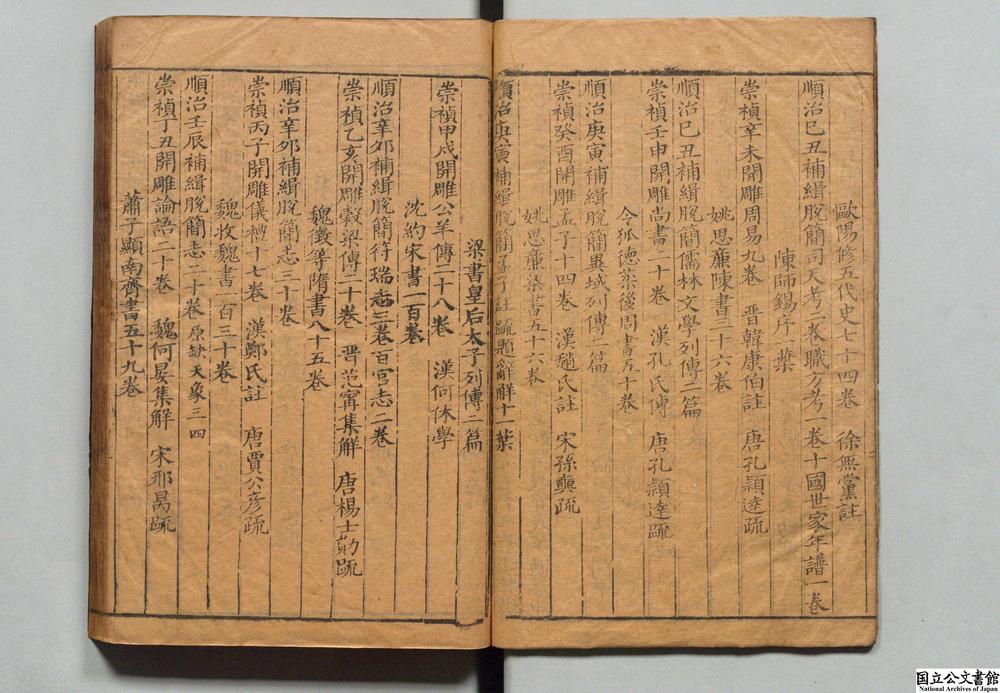 歐陽修五代史七十四卷　徐無黨註
順治己丑補緝脫簡司天考二卷職方考一卷十國世家年譜一卷
陳師錫序一葉
崇禎辛未開雕周易九卷　晉韓康伯註　唐孔穎達疏
姚思廉陳書三十六卷
順治己丑補緝脫簡儒林文學列傳二篇
崇禎壬申開雕尚書二十卷　漢孔氏傳　唐孔穎達疏
令狐德棻後周書五十卷
順治庚寅補緝脫簡異域列傳二篇
崇禎癸酉開雕孟子十四卷　漢趙氏註　宋孫奭疏
姚思廉梁書五十六卷
順治庚寅補緝脫簡孟子註疏題辭解十一葉
梁書皇后太子列傳二篇
崇禎甲戌開雕公羊傳二十八卷　漢何休學
沈約宋書一百卷
順治辛卯補緝脫簡符瑞志三卷百官志二卷
崇禎乙亥開雕穀梁傳二十卷　晉范甯集解　唐楊士勛疏
魏徵等隋書八十五卷
順治辛卯補緝脫簡志三十卷
崇禎丙子開雕儀禮十七卷　漢鄭氏註　唐賈公彥疏
魏收魏書一百三十卷
順治壬辰補緝脫簡志二十卷原缺天象三四
崇禎丁丑開雕論語二十卷　魏何晏集解　宋邢昺疏
蕭子顯南齊書五十九卷
国立公文書館
National Archives of Japan